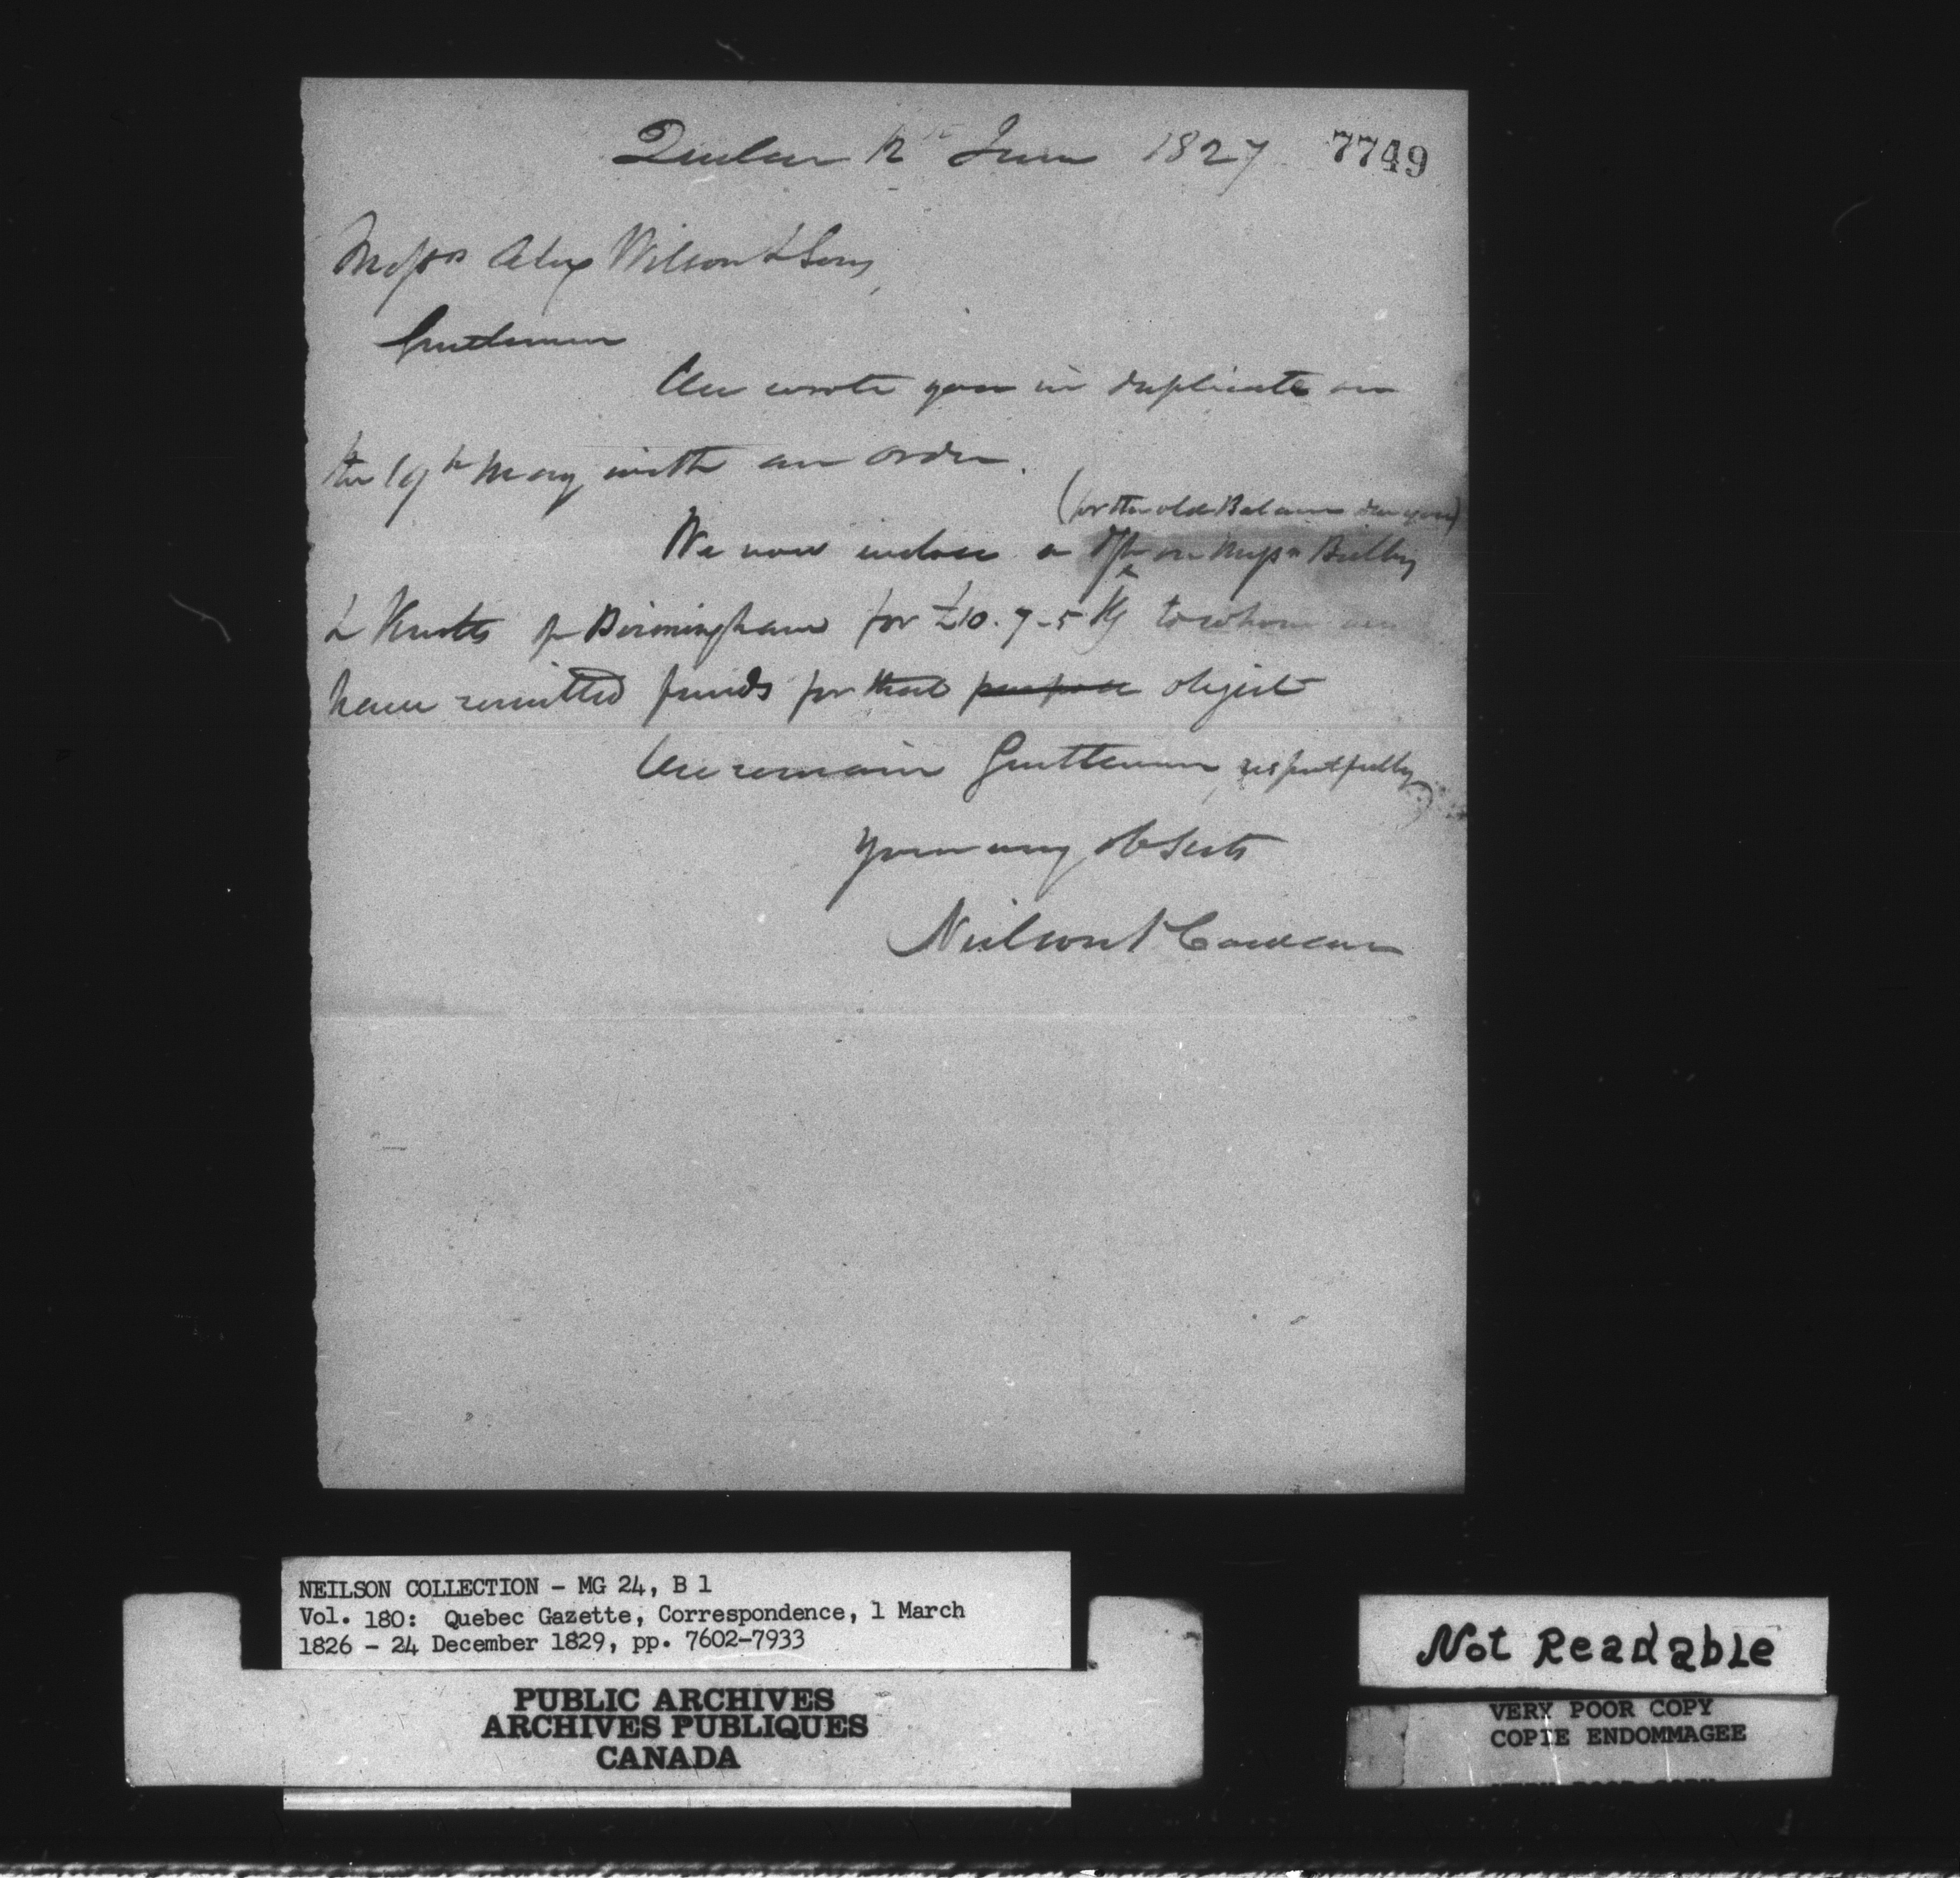 Quebec 12th June 1827 7749
Messrs Alex Wilson & Sons,
Gentlemen
We wrote you in duplicate on
the 19th May with an order.
(for the old Balance due you)
We now inclose a dft on Messrs
& Knotts of Birmingham for £10.7-5 Stg to whom we
have remitted funds for that purpose object
We remain Gentlemen, respectfully
Your very Ob Sevts
Neilson & Cowan
NEILSON COLLECTION - MG 24, B 1
Vol. 180: Quebec Gazette, Correspondence, 1 March
1826 - 24 December 1829, pp. 7602-7933
PUBLIC ARCHIVES
ARCHIVES PUBLIQUES
CANADA
Not Readable
VERY POOR COPY
COPIE ENDOMMAGEE
VERY POOR COPY